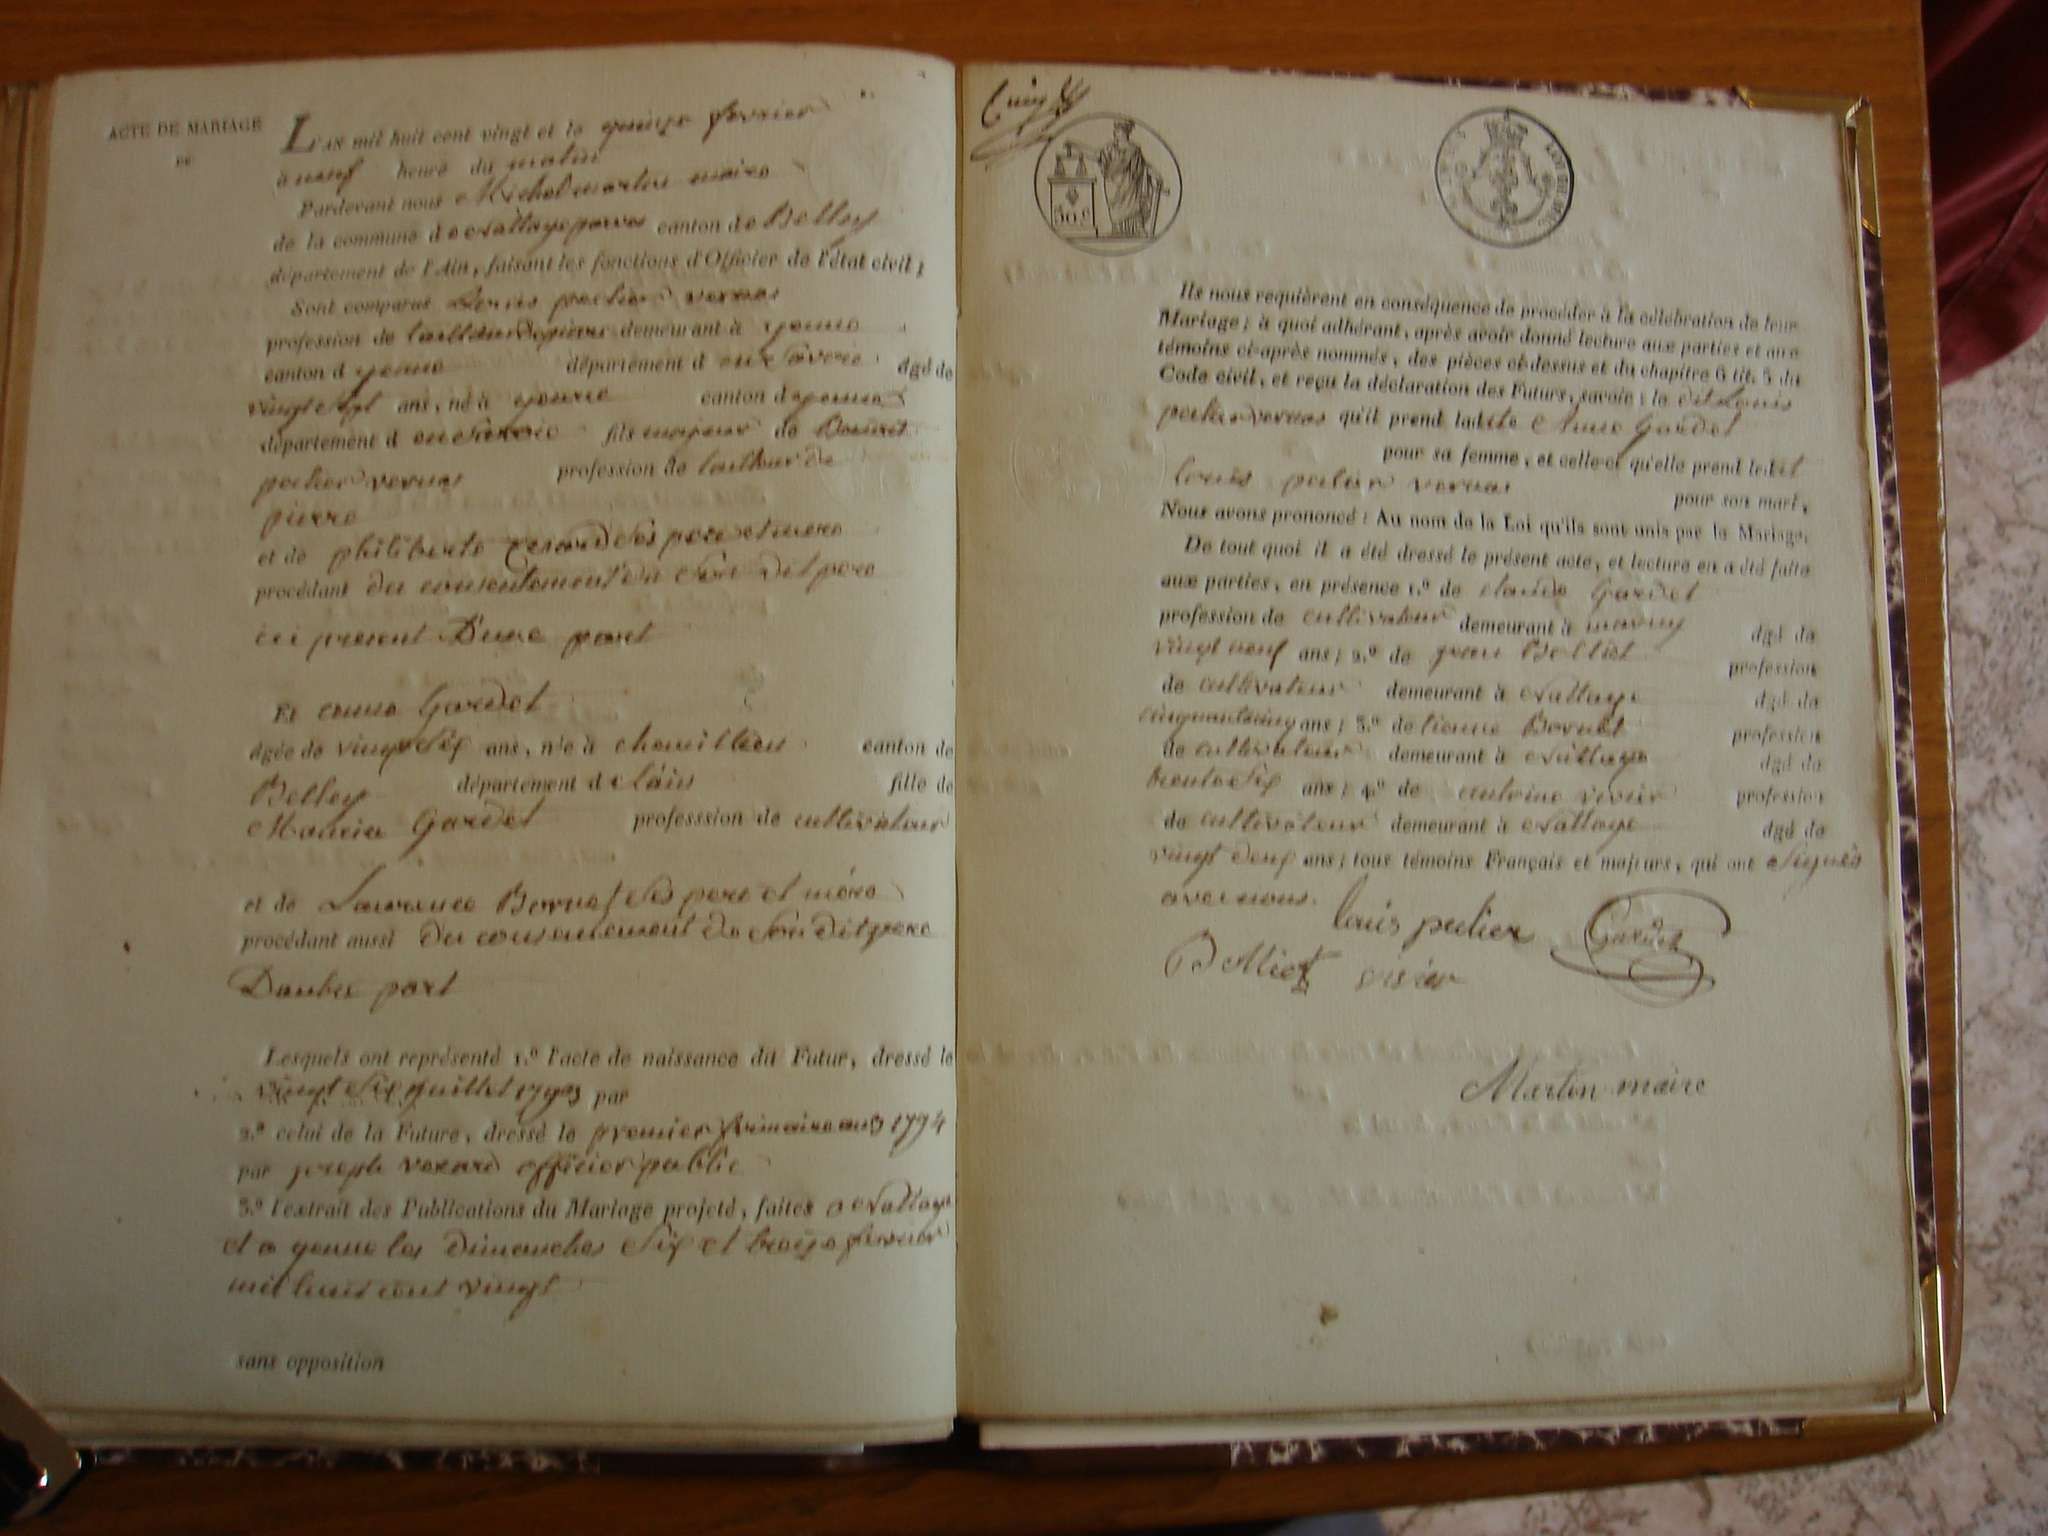 ACTE DE MARIAGE
DE
L'AN mil huit cent vingt et le quinze fevrier
à neuf heure du matin
Pardevant nous Michel martin maire
de la commune de canton de Belley
département de l'Ain, faisant les fonctions d'Officier de l'état civil;
Sont comparus Louis vernas
profession de tailleur de pierre demeurant à yenne
canton d yenne département d en Savoie âgé de
vingt Sept ans, né à yenne canton d yenne
département d en Savoie fils majeur de Benoit
vernas profession de tailleur de
pierre
et de philiberte Ses pere et mere
procédant du consentement du Son dit pere
ici present D'une part
Et anne Gardet
âgée de vingt Six ans, née à chemillieu canton de
Belley département d elain fille de
Gardet professsion de cultivateur
et de Laurence Bornet Ses pere et mére
procédant aussi du consentement de Son dit pere
Dautre part
Lesquels ont représenté 1.º l'acte de naissance du Futur, dressé le
vingt Six juillet 1793 par
2.º celui de la Future, dressé le premier frimaire an 3 1794
par joseph officier public
3.º l'extrait des Publications du Mariage projeté, faites a
et a yenne les Dimanches Six et treize fevrier
mil huit cent vingt
sans opposition
Cinq
30.c
Ils nous requièrent en conséquence de procéder à la célébration de leur
Mariage; à quoi adhérant, après avoir donné lecture aux parties et aux
témoins ci-après nommés, des pièces ci-dessus et du chapitre 6 tit. 5 du
Code civil, et reçu la déclaration des Futurs, savoir: le dit Louis
vernas qu'il prend ladite Anne Gardet
pour sa femme, et celle-ci qu'elle prend ledit
louis vernas pour son mari,
Nous avons prononcé: Au nom de la Loi qu'ils sont unis par le Mariage.
De tout quoi il a été dressé le présent acte, et lecture en a été faite
aux parties, en présence 1.º de claude Gardet
profession de cultivateur demeurant à âgé de
vingt neuf ans; 2.º de jean Belliet profession
de cultivateur demeurant à âgé de
cinquante cinq ans; 3.º de Bornet profession
de cultivateur demeurant à âgé de
trente Six ans; 4.º de antoine vivier profession
de cultivateur demeurant à âgé de
vingt deux ans; tous témoins Français et majurs, qui ont Signés
avec nous.
louis pelier Gardet
Belliet vivier
Martin maire